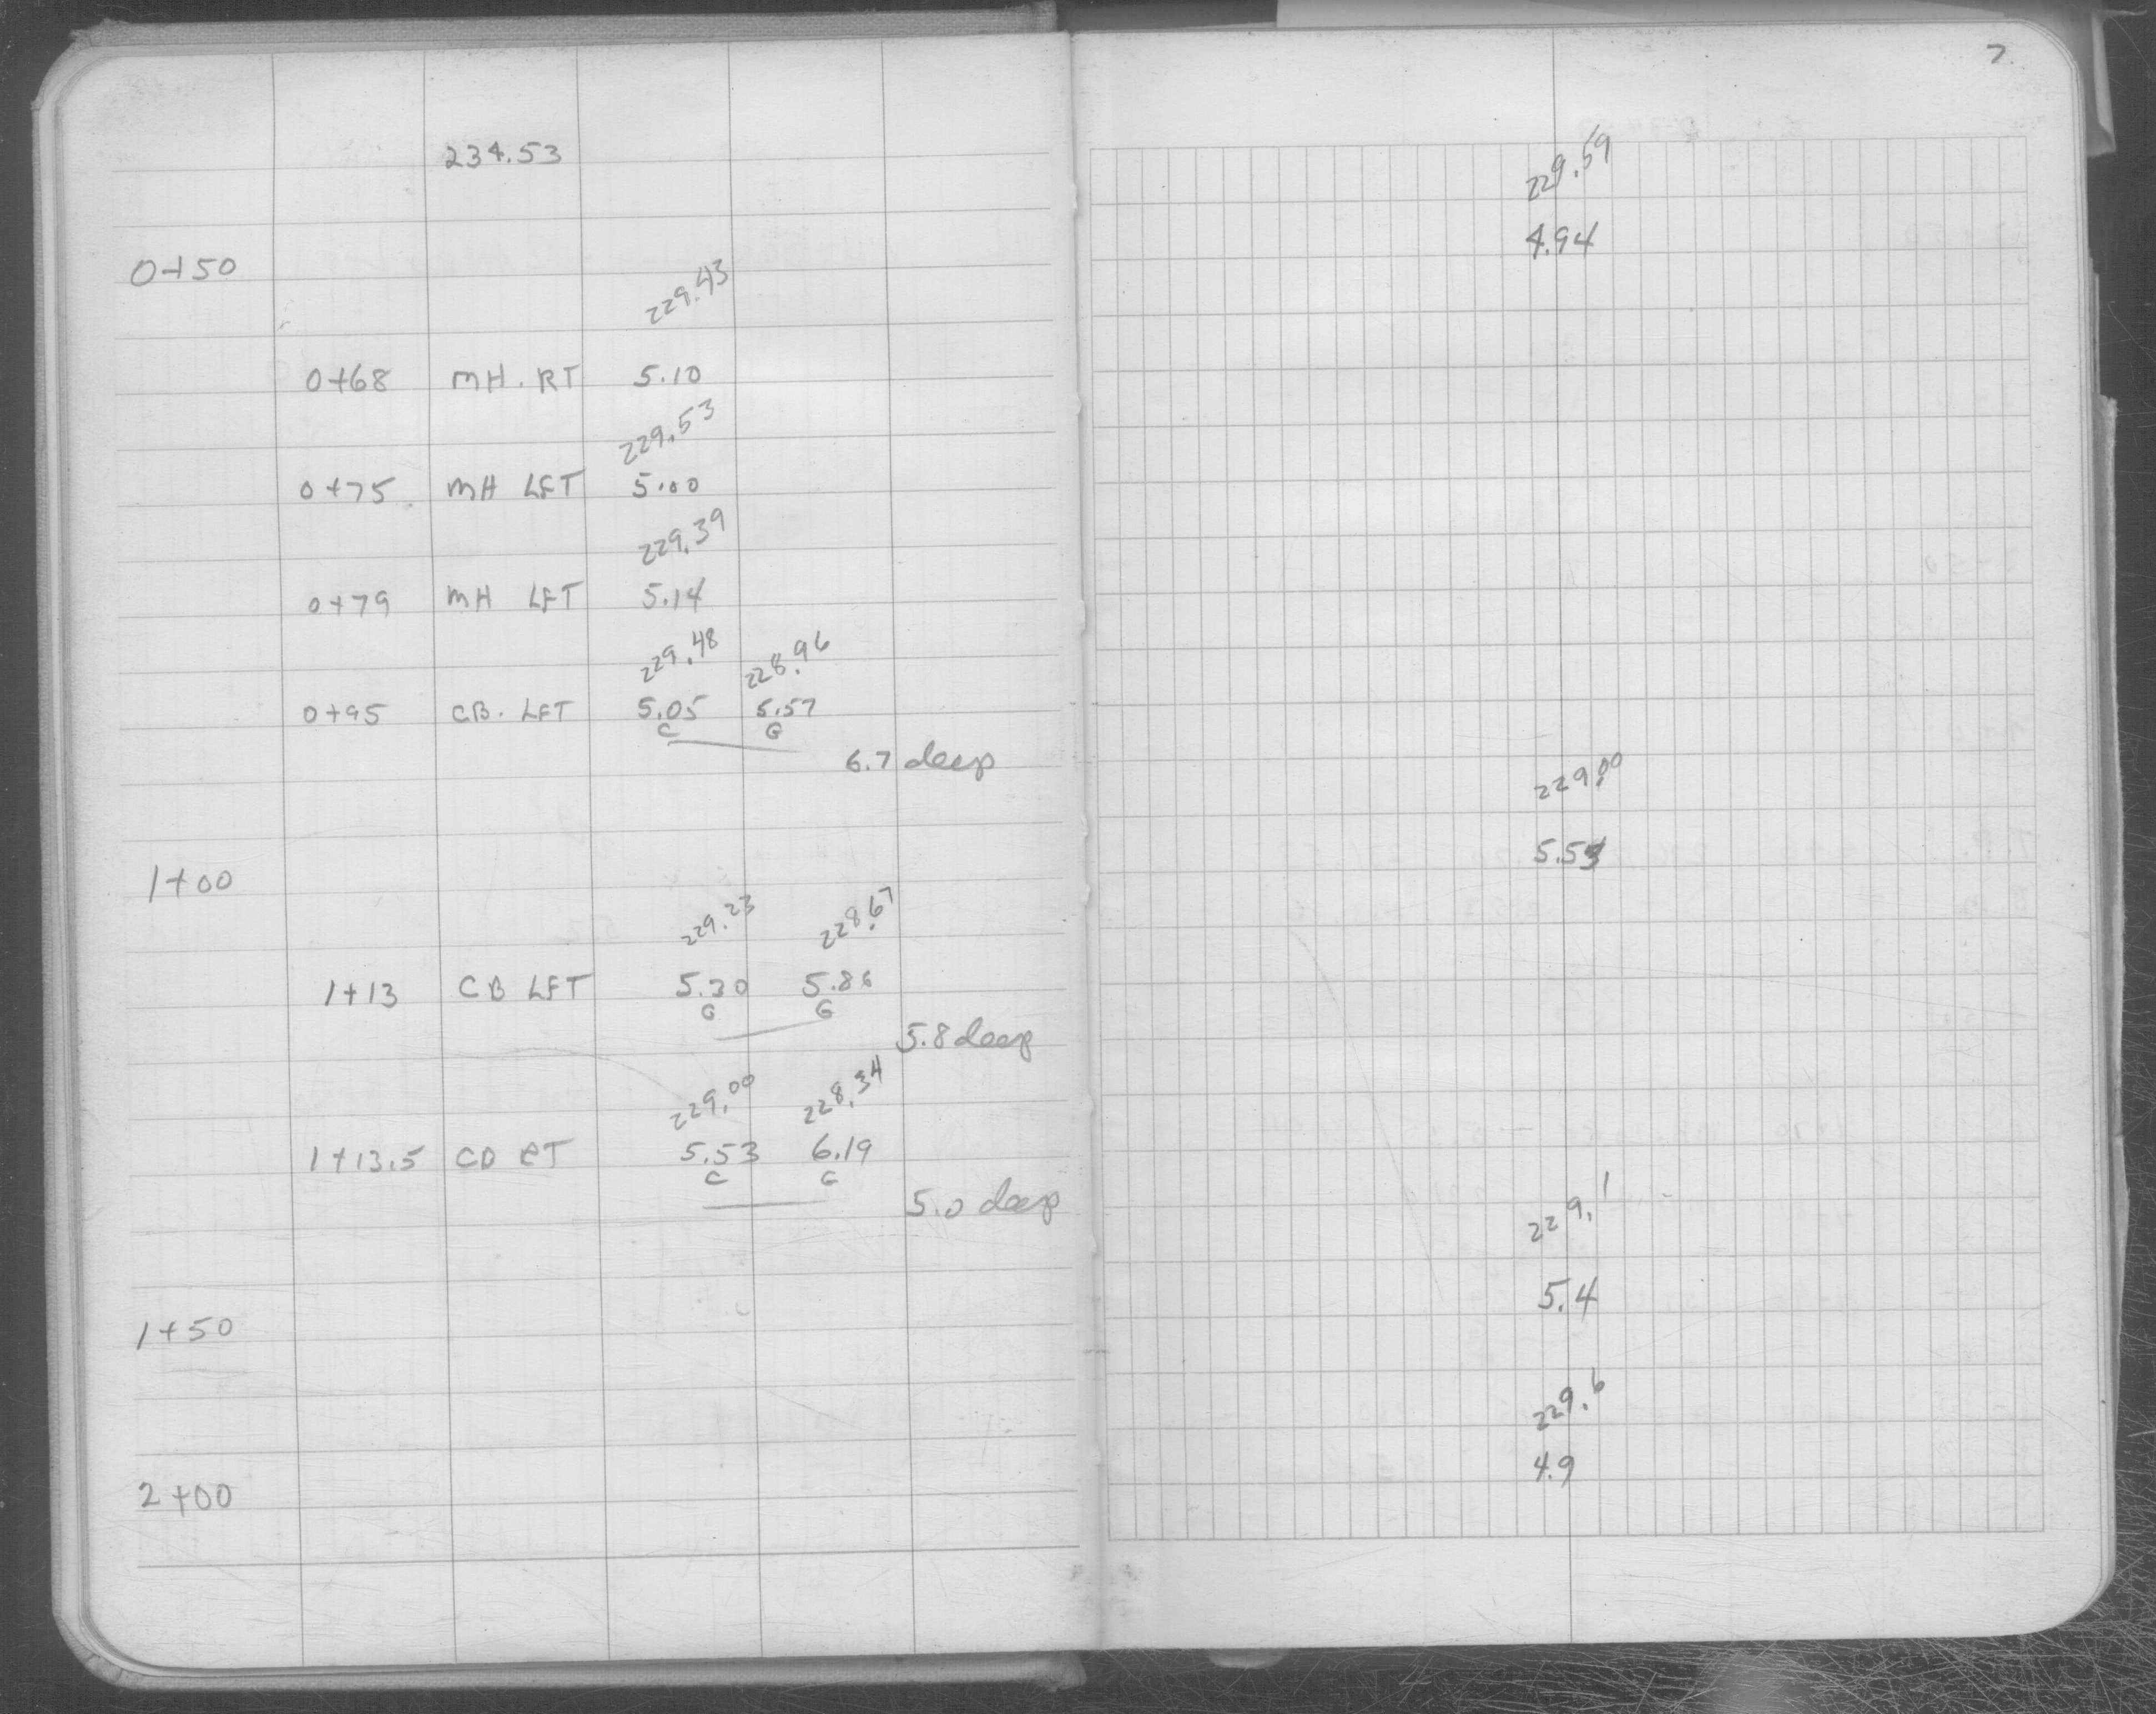 7
234.53
229.59
4.94
0+50
229.43
0+68 MH. RT 5.10
229.53
0+75 MH LFT 5.00
229.39
0+79 MH LFT 5.14
229.48 228.96
0+95 CB. LFT 5.05 5.57
C G
6.7 deep
229.00
5.53
1+00
229.23 228.67
1+13 CB LFT 5.30 5.86
C G
5.8 deep
229.00 228.34
1+13.5 CB RT 5.53 6.19
C G
5.0 deep
229.1
5.4
1+50
229.6
4.9
2+00